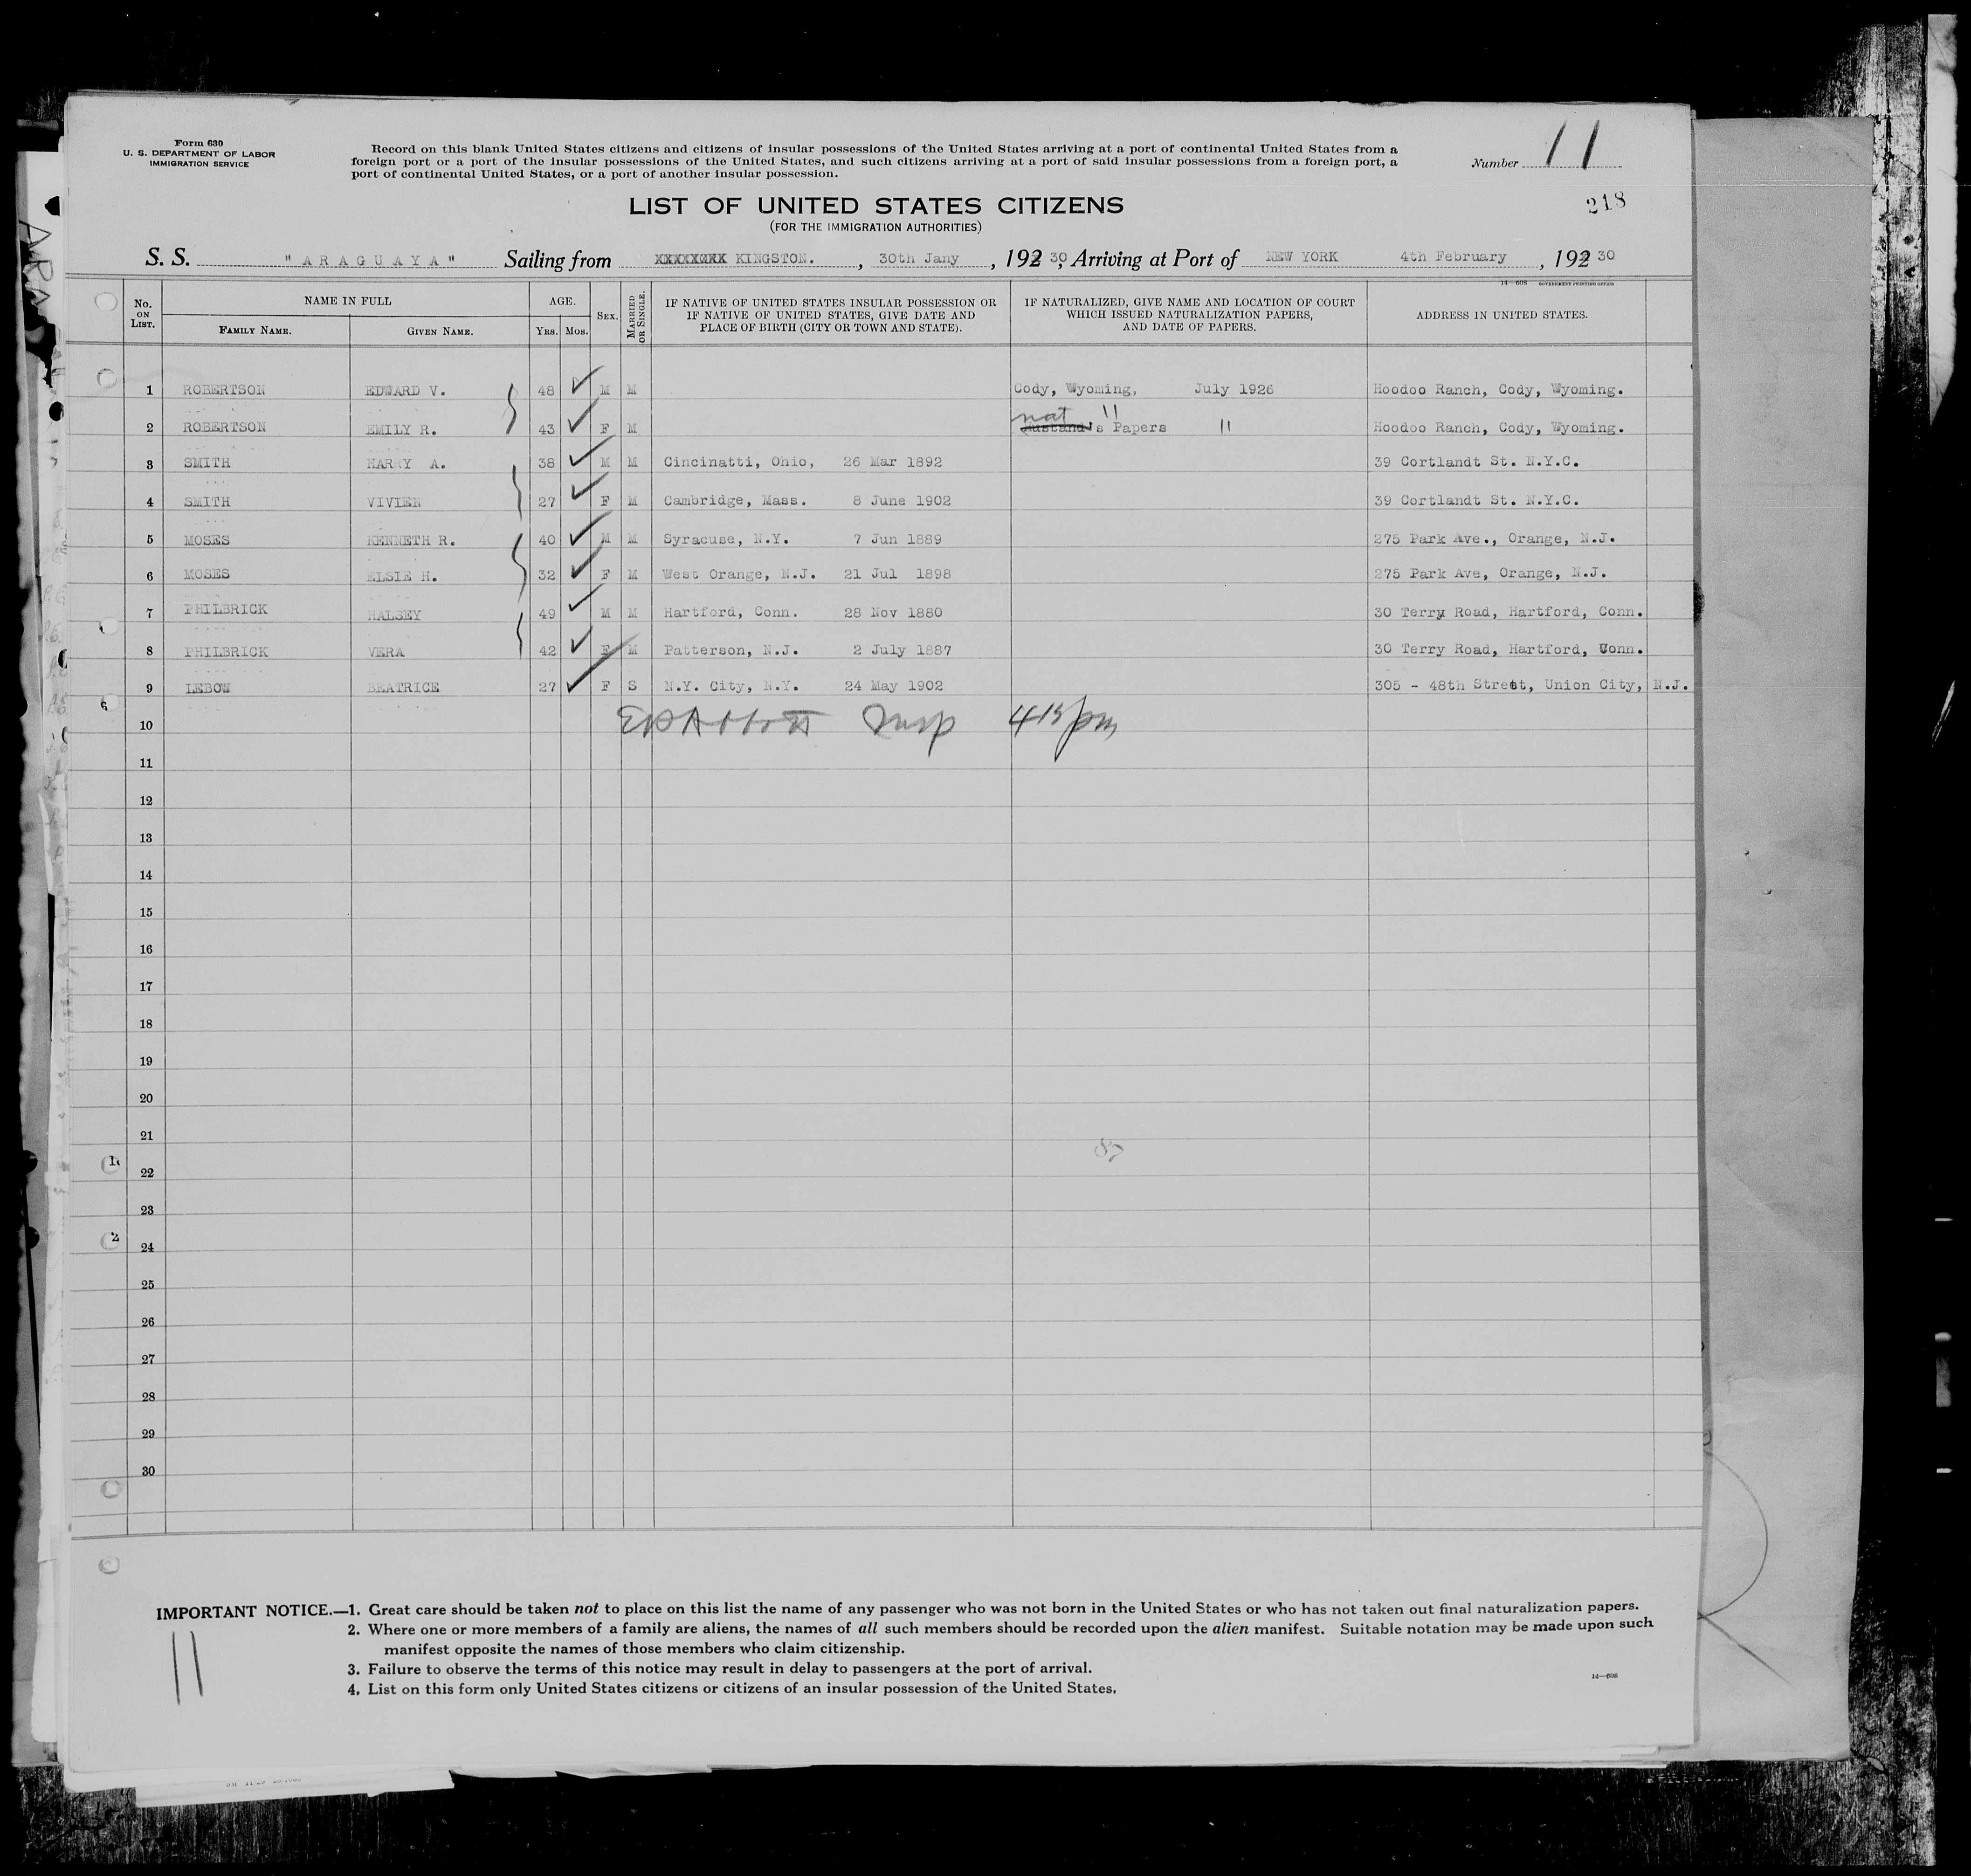 Form 630
U. S. DEPARTMENT OF LABOR
IMMIGRATION SERVICE
Record on this blank United States citizens and citizens of insular possessions of the United States arriving at a port of continental United States from a
foreign port or a port of the insular possessions of the United States, and such citizens arriving at a port of said insular possessions from a foreign port, a
port of continental United States, or a port of another insular possession.
Number 11
218
LIST OF UNITED STATES CITIZENS
(FOR THE IMMIGRATION AUTHORITIES)
S. S. "ARAGUAYA" Sailing from KINGSTON. , 30th Jany , 192 30, Arriving at Port of NEW YORK 4th February , 192 30
14—608 GOVERNMENT PRINTING OFFICE
No. ON LIST. NAME IN FULL FAMILY NAME. GIVEN NAME. AGE. YRS. MOS. SEX. MARRIED OR SINGLE. IF NATIVE OF UNITED STATES INSULAR POSSESSION OR IF NATIVE OF UNITED STATES, GIVE DATE AND PLACE OF BIRTH (CITY OR TOWN AND STATE). IF NATURALIZED, GIVE NAME AND LOCATION OF COURT WHICH ISSUED NATURALIZATION PAPERS, AND DATE OF PAPERS. ADDRESS IN UNITED STATES.
1 ROBERTSON EDWARD V. 48 M M Cody, Wyoming, July 1926 Hoodoo Ranch, Cody, Wyoming.
nat "
2 ROBERTSON EMILY R. 43 F M Husband's Papers " Hoodoo Ranch, Cody, Wyoming.
3 SMITH HARRY A. 38 M M Cincinatti, Ohio, 26 Mar 1892 39 Cortlandt St. N.Y.C.
4 SMITH VIVIEN 27 F M Cambridge, Mass. 8 June 1902 39 Cortlandt St. N.Y.C.
5 MOSES KENNETH R. 40 M M Syracuse, N.Y. 7 Jun 1889 275 Park Ave., Orange, N.J.
6 MOSES ELSIE H. 32 F M West Orange, N.J. 21 Jul 1898 275 Park Ave, Orange, N.J.
7 PHILBRICK HALSEY 49 M M Hartford, Conn. 28 Nov 1880 30 Terry Road, Hartford, Conn.
8 PHILBRICK VERA 42 F M Patterson, N.J. 2 July 1887 30 Terry Road, Hartford, Conn.
9 LEBOW BEATRICE 27 F S N.Y. City, N.Y. 24 May 1902 305 - 48th Street, Union City, N.J.
10 Insp 415 pm
11
12
13
14
15
16
17
18
19
20
21
87
22
23
24
25
26
27
28
29
30
IMPORTANT NOTICE.—1. Great care should be taken not to place on this list the name of any passenger who was not born in the United States or who has not taken out final naturalization papers.
2. Where one or more members of a family are aliens, the names of all such members should be recorded upon the alien manifest. Suitable notation may be made upon such
manifest opposite the names of those members who claim citizenship.
3. Failure to observe the terms of this notice may result in delay to passengers at the port of arrival.
4. List on this form only United States citizens or citizens of an insular possession of the United States.
14—608
11